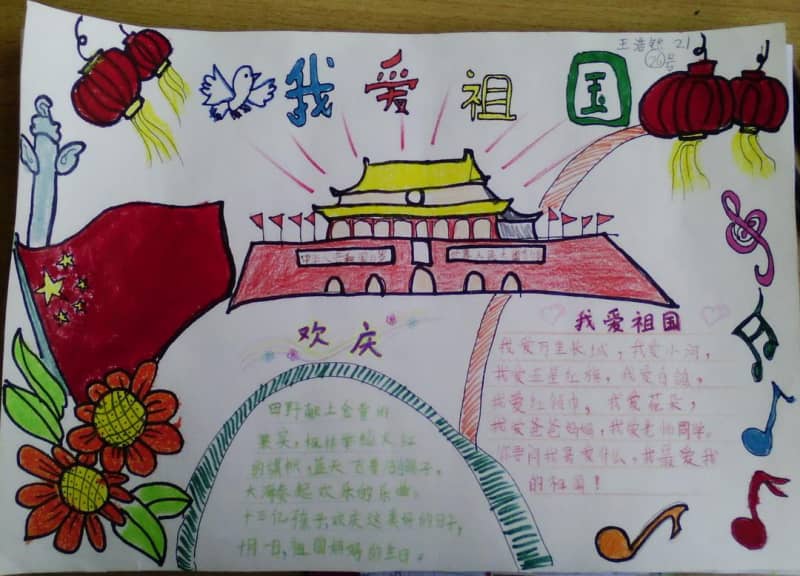 王浩然 21
20号
我爱祖国
中华人民共和国万岁
世界人民大团结万岁
欢庆
田野献上金黄的
果实，枫林举起火红
的旗帜，蓝天飞着洁白鸽子，
大海奏起欢乐的乐曲。
十三亿孩子，欢庆这美好的日子，
十月一日，祖国妈妈的生日。
我爱祖国
我爱万里长城，我爱小河，
我爱五星红旗，我爱白鸽，
我爱红领巾，我爱花朵，
我爱爸爸妈妈，我爱老师同学。
你要问我最爱什么，我最爱我
的祖国！